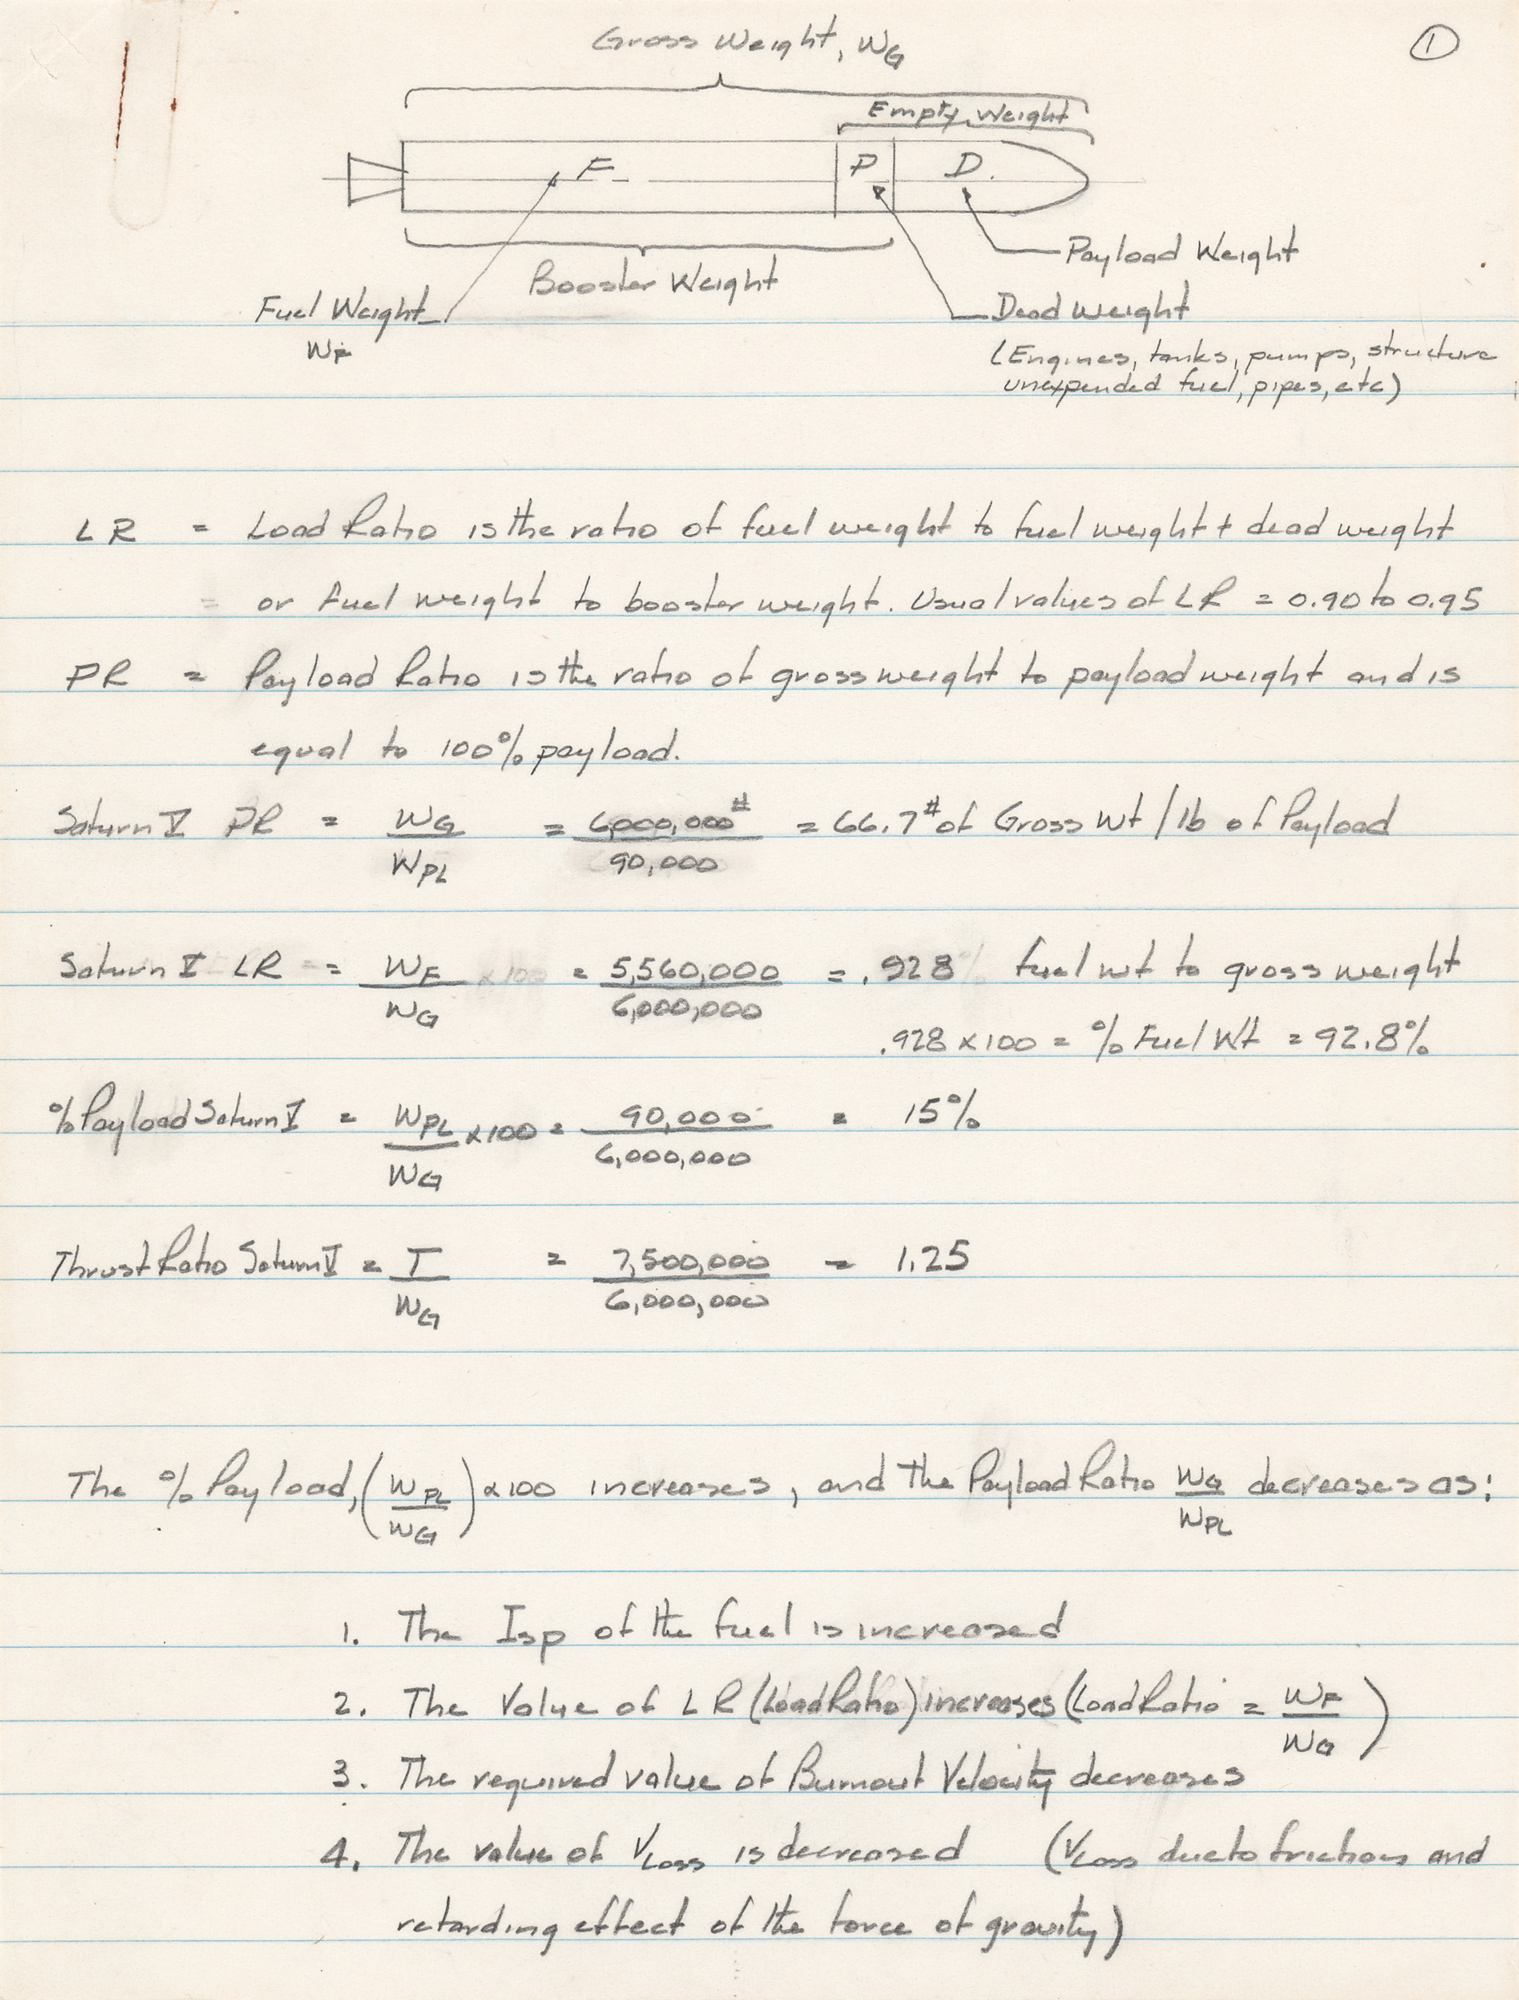 ①
Gross Weight, WG
Empty Weight
F P D.
Payload Weight
Booster Weight
Fuel Weight
WF
Dead Weight
(Engines, tanks, pumps, structure
unexpended fuel, pipes, etc)
LR = Load Ratio is the ratio of fuel weight to fuel weight + dead weight
= or fuel weight to booster weight. Usual values of LR = 0.90 to 0.95
PR = Payload Ratio is the ratio of gross weight to payload weight and is
equal to 100% payload.
Saturn V PR = WG = 6,000,000# = 66.7# of Gross Wt / lb of Payload
WPL 90,000
Saturn V LR = WF x100 = 5,560,000 = .928 fuel wt to gross weight
WG 6,000,000
.928 x 100 = % Fuel Wt = 92.8%
% Payload Saturn V = WPL x100 = 90,000 = 15%
WG 6,000,000
Thrust Ratio Saturn V = T = 7,500,000 = 1.25
WG 6,000,000
The % Payload, (WPL) x100 increases, and the Payload Ratio WG decreases as:
WG WPL
1. The Isp of the fuel is increased
2. The Value of LR (Load Ratio) increases (Load Ratio = WF)
WG
3. The required value of Burnout Velocity decreases
4. The value of VLoss is decreased (VLoss due to friction and
retarding effect of the force of gravity)